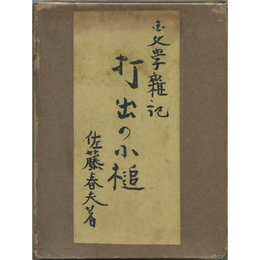 文學雜記
打出の小槌
佐藤春夫著